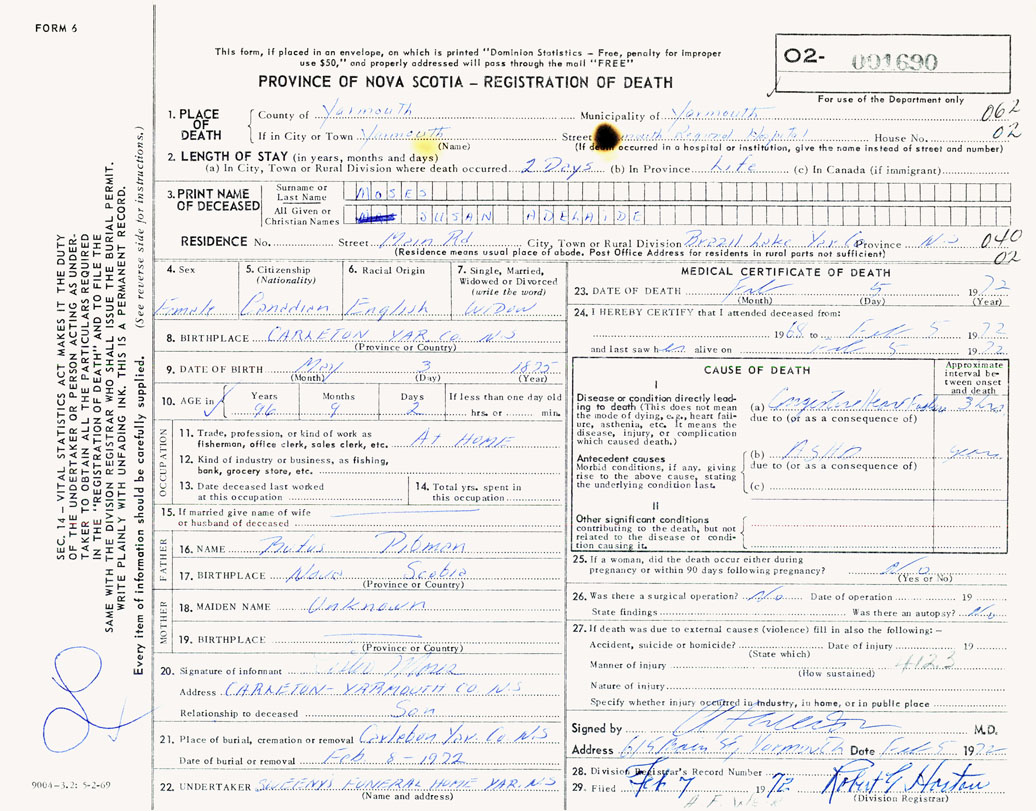 FORM 6
This form, if placed in an envelope, on which is printed "Dominion Statistics – Free, penalty for improper
use $50," and properly addressed will pass through the mail "FREE"
PROVINCE OF NOVA SCOTIA – REGISTRATION OF DEATH
02- 001690
For use of the Department only
1. PLACE OF DEATH
County of Yarmouth Municipality of Yarmouth 062
If in City or Town Yarmouth Street Regional Hospital House No. 02
(Name) (If death occurred in a hospital or institution, give the name instead of street and number)
2. LENGTH OF STAY (in years, months and days)
(a) In City, Town or Rural Division where death occurred 2 Days (b) In Province Life (c) In Canada (if immigrant)
3. PRINT NAME OF DECEASED
Surname or Last Name MOSES
All Given or Christian Names SUSAN ADELAIDE
RESIDENCE No. Street Main Rd City, Town or Rural Division Brazil Lake Yar Co Province N.S 040
(Residence means usual place of abode. Post Office Address for residents in rural parts not sufficient) 02
4. Sex Female
5. Citizenship (Nationality) Canadian
6. Racial Origin English
7. Single, Married, Widowed or Divorced (write the word) Widow
8. BIRTHPLACE CARLETON YAR. CO. N.S
(Province or Country)
9. DATE OF BIRTH May 3 1875
(Month) (Day) (Year)
10. AGE in Years Months Days If less than one day old
96 9 2 hrs. or min.
OCCUPATION
11. Trade, profession, or kind of work as fisherman, office clerk, sales clerk, etc. AT HOME
12. Kind of industry or business, as fishing, bank, grocery store, etc.
13. Date deceased last worked at this occupation
14. Total yrs. spent in this occupation
15. If married give name of wife or husband of deceased
FATHER
16. NAME Rufus Pitman
17. BIRTHPLACE Nova Scotia
(Province or Country)
MOTHER
18. MAIDEN NAME Unknown
19. BIRTHPLACE
(Province or Country)
20. Signature of informant
Address CARLETON - YARMOUTH CO N.S
Relationship to deceased Son
21. Place of burial, cremation or removal Carleton Yar. Co. N.S
Date of burial or removal Feb. 8 - 1972
22. UNDERTAKER SWEENYS FUNERAL HOME YAR. N.S
(Name and address)
MEDICAL CERTIFICATE OF DEATH
23. DATE OF DEATH Feb 5 1972
(Month) (Day) (Year)
24. I HEREBY CERTIFY that I attended deceased from:
1968 to Feb 5 1972
and last saw her alive on Feb 5 1972
CAUSE OF DEATH
Approximate interval between onset and death
I
Disease or condition directly leading to death (This does not mean the mode of dying, e.g., heart failure, asthenia, etc. It means the disease, injury, or complication which caused death.)
(a) Congestive Heart Failure 3 hrs
due to (or as a consequence of)
Antecedent causes
Morbid conditions, if any, giving rise to the above cause, stating the underlying condition last.
(b) ASHD years
due to (or as a consequence of)
(c)
II
Other significant conditions
contributing to the death, but not related to the disease or condition causing it.
25. If a woman, did the death occur either during pregnancy or within 90 days following pregnancy? No
(Yes or No)
26. Was there a surgical operation? No Date of operation 19
State findings Was there an autopsy? No
27. If death was due to external causes (violence) fill in also the following: –
Accident, suicide or homicide? Date of injury 19
(State which)
Manner of injury 412.3
(How sustained)
Nature of injury
Specify whether injury occurred in industry, in home, or in public place
Signed by M.D.
Address 615 Main St, Yarmouth Date Feb 5 1972
28. Division Registrar's Record Number
29. Filed Feb 7 1972 Robert G Horton
(Division Registrar)
SEC. 14 – VITAL STATISTICS ACT MAKES IT THE DUTY
OF THE UNDERTAKER OR PERSON ACTING AS UNDER-
TAKER TO OBTAIN ALL THE PARTICULARS REQUIRED
IN THE "REGISTRATION OF DEATH" AND TO FILE THE
SAME WITH THE DIVISION REGISTRAR WHO SHALL ISSUE THE BURIAL PERMIT.
WRITE PLAINLY WITH UNFADING INK. THIS IS A PERMANENT RECORD.
Every item of information should be carefully supplied. (See reverse side for instructions.)
9004-3.2: 5-2-69